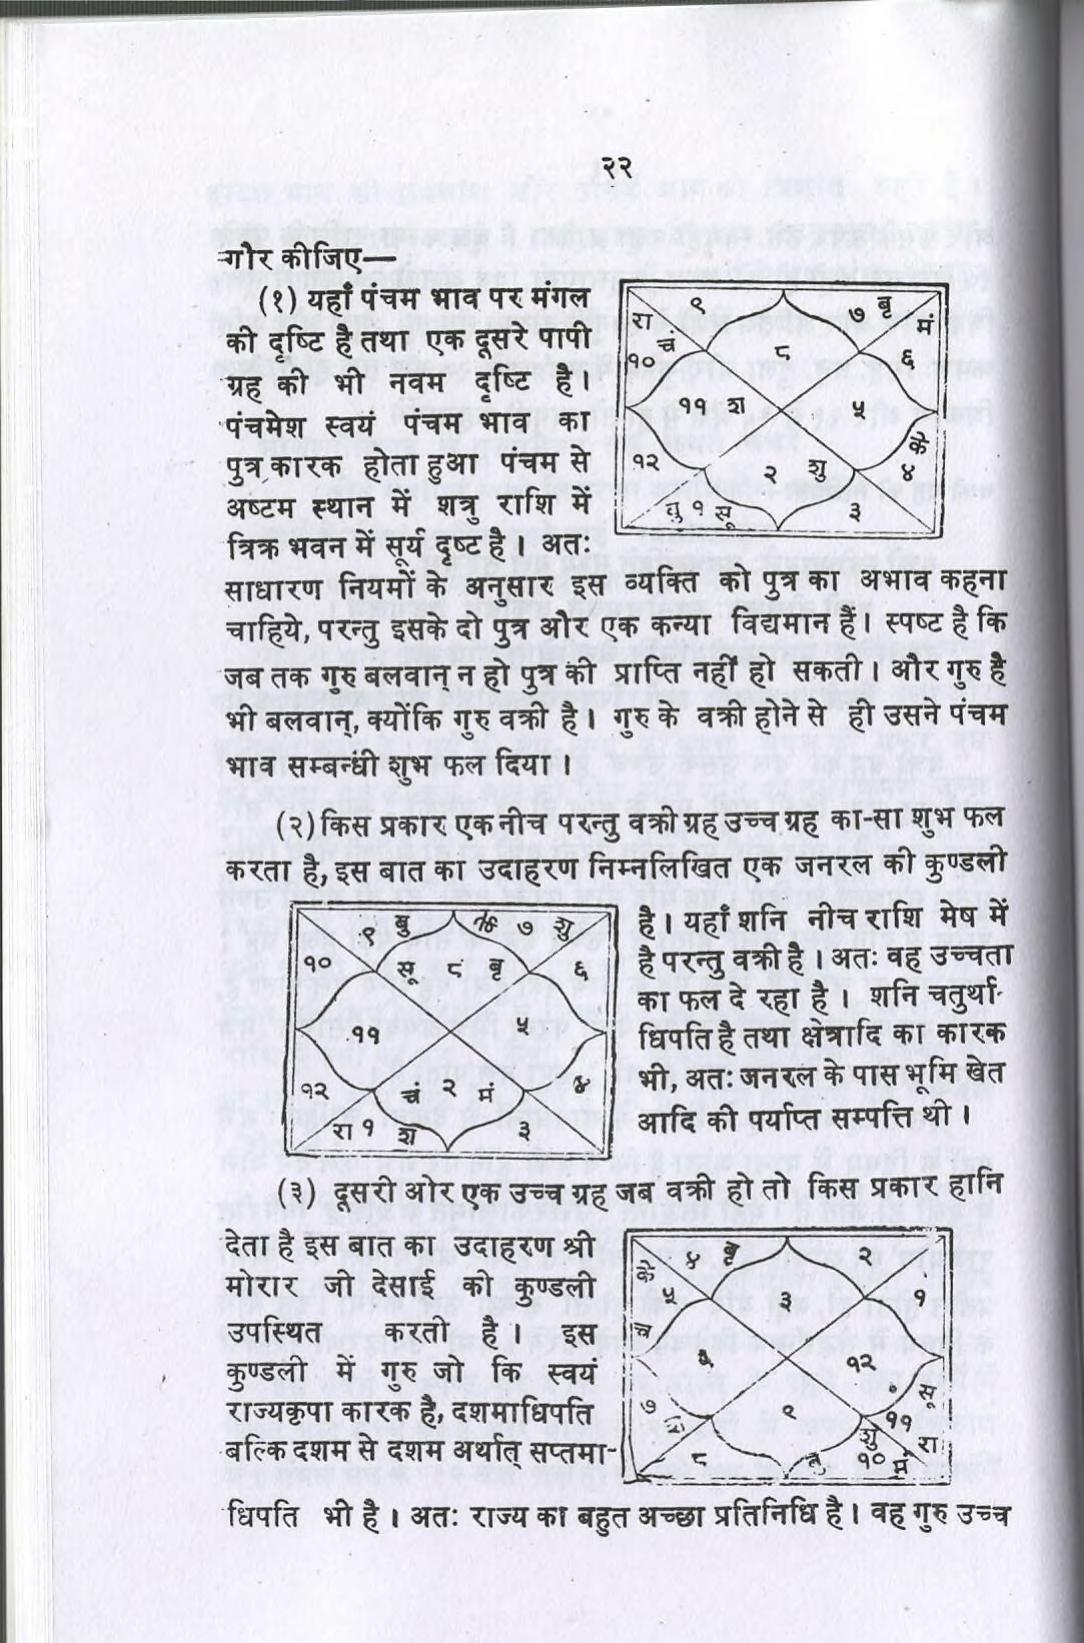 २२
गौर कीजिए—
(१) यहाँ पंचम भाव पर मंगल
की दृष्टि है तथा एक दूसरे पापी
ग्रह की भी नवम दृष्टि है।
पंचमेश स्वयं पंचम भाव का
पुत्र कारक होता हुआ पंचम से
अष्टम स्थान में शत्रु राशि में
त्रिक्र भवन में सूर्य दृष्ट है। अतः
रा ९ ७ बृ मं
च १० ८ ६
११ श ५
१२ २ शु के ४
१ सू ३
साधारण नियमों के अनुसार इस व्यक्ति को पुत्र का अभाव कहना
चाहिये, परन्तु इसके दो पुत्र और एक कन्या विद्यमान हैं। स्पष्ट है कि
जब तक गुरु बलवान् न हो पुत्र की प्राप्ति नहीं हो सकती। और गुरु है
भी बलवान्, क्योंकि गुरु वक्री है। गुरु के वक्री होने से ही उसने पंचम
भाव सम्बन्धी शुभ फल दिया।
(२) किस प्रकार एक नीच परन्तु वक्री ग्रह उच्च ग्रह का-सा शुभ फल
करता है, इस बात का उदाहरण निम्नलिखित एक जनरल की कुण्डली
९ बु के ७ शु
१० सू ८ बृ ६
११ ५
१२ चं २ मं ४
रा १ श ३
है। यहाँ शनि नीच राशि मेष में
है परन्तु वक्री है। अतः वह उच्चता
का फल दे रहा है। शनि चतुर्था-
धिपति है तथा क्षेत्रादि का कारक
भी, अतः जनरल के पास भूमि खेत
आदि की पर्याप्त सम्पत्ति थी।
(३) दूसरी ओर एक उच्च ग्रह जब वक्री हो तो किस प्रकार हानि
देता है इस बात का उदाहरण श्री
मोरार जी देसाई की कुण्डली
उपस्थित करती है। इस
कुण्डली में गुरु जो कि स्वयं
राज्यकृपा कारक है, दशमाधिपति
बल्कि दशम से दशम अर्थात् सप्तमा-
के ४ बृ २
५ ३ १
च १२ सू
७ ९ ११
८ शु १० मं रा
धिपति भी है। अतः राज्य का बहुत अच्छा प्रतिनिधि है। वह गुरु उच्च